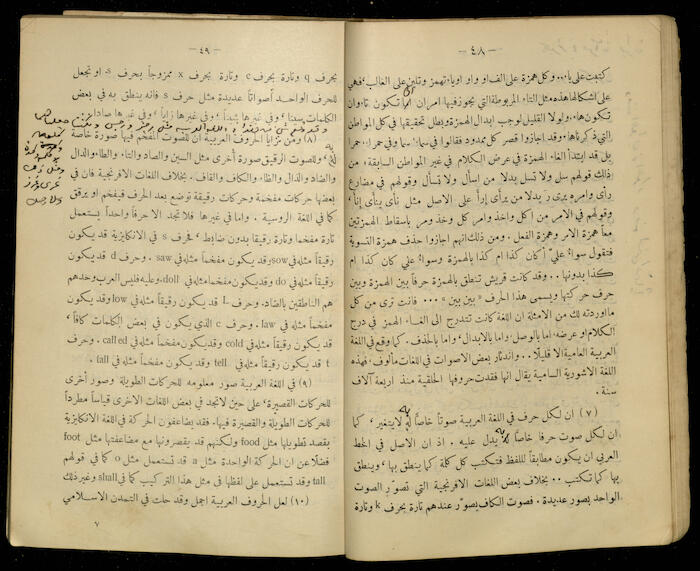 — ٤٨ —
كتبت على ياء.. وكل همزة على الف او واو او ياء تهمز وتلين على الغالب. فهي
على اشكالها هذه مثل التاء المربوطة التي يجوز فيها امران اما تكون تاء وان
تكون هاء. ولولا القليل لوجب ابدال الهمزة وبطل تحقيقها في كل المواطن
التي ذكرناها. وقد اجازوا قصر كل ممدود فقالوا في سماء: سما وفي حمراء: حمرا
بل قد ابتدأ الغاء الهمزة في عرض الكلام في غير المواطن السابقة، من
ذلك قولهم سل ولا تسل بدلا من إسأل ولا تسأل وقولهم في مضارع
رأى وامره يرى رَ بدلا من يرأى إرأَ على الاصل مثل نأى ينأى إنأَ،
وقولهم في الامر من اكل واخذ وامر كل وخذ ومر باسقاط الهمزتين
معاً همزة الامر وهمزة الفعل. ومن ذلك انهم اجازوا حذف همزة التسوية
فتقول سواء علي أكان كذا ام كذا بالهمزة وسواء علي كان كذا ام
كذا بدونها.. وقد كانت قريش تنطق بالهمزة حرفاً بين الهمزة وبين
حرف حركتها ويسمى هذا الحرف «بين بين»... فانت ترى من كل
ما اوردته لك من الامثلة ان اللغة كانت تتدرج الى الغاء الهمز في درج
الكلام او عرضه، اما بالوصل، واما بالابدال، واما بالحذف. كما وقع في اللغة
العربية العامية الا قليلا.. واندثار بعض الاصوات في اللغات مألوف، فهذه
اللغة الاشورية السامية يقال انها فقدت حروفها الحلقية منذ اربعة آلاف
سنة.
(٧) ان لكل حرف في اللغة العربية صوتاً خاصاً له لا يتغير، كما
ان لكل صوت حرفا خاصاً يدل عليه. اذ ان الاصل في الخط
العربي ان يكون مطابقاً للفظ فتكتب كل كلمة كما ينطق بها، وينطق
بها كما تكتب.. بخلاف بعض اللغات الافرنجية التي تصور الصوت
الواحد بصور عديدة. فصوت الكاف يصور عندهم تارة بحرف k وتارة
— ٤٩ —
بحرف q وتارة بحرف c وتارة بحرف x ممزوجاً بحرف s او تجعل
للحرف الواحد أصواتاً عديدة مثل حرف s فانه ينطق به في بعض
الكلمات سيناً، وفي غيرها شيناً، وفي غيرها زاياً، وفي غيرها صاداً.
(٨) ومن مزايا الحروف العربية ان للصوت المفخم فيها صورة خاصة
به وللصوت الرقيق صورة أخرى مثل السين والصاد والتاء والطاء والدال
والضاد والذال والظاء والكاف والقاف. بخلاف اللغات الافرنجية فان في
بعضها حركات مفخمة وحركات رقيقة توضع بعد الحرف فيفخم او يرقق
كما في اللغة الروسية. واما في غيرها فلا تجد الا حرفاً واحداً يستعمل
تارة مفخما وتارة رقيقا بدون ضابط، فحرف s في الانكليزية قد يكون
رقيقاً مثله في sow وقد يكون مفخماً مثله في saw. وحرف d قد يكون
رقيقاً مثله في do وقد يكون مفخماً مثله في doll. وعليه فليس العرب وحدهم
هم الناطقين بالضاد. وحرف L قد يكون رقيقاً مثله في low وقد يكون
مفخماً مثله في law. وحرف c الذي يكون في بعض الكلمات كافاً،
قد يكون رقيقاً مثله في cold وقد يكون مفخماً مثله في called. وحرف
t قد يكون رقيقاً مثله في tell وقد يكون مفخماً مثله في tall.
(٩) في اللغة العربية صور معلومه للحركات الطويلة وصور أخرى
للحركات القصيرة، على حين لا تجد في بعض اللغات الاخرى قياساً مطرداً
للحركات الطويلة والقصيرة فيها. فقد يضاعفون الحركة في اللغة الانكليزية
بقصد تطويلها مثل food ولكنهم قد يقصرونها مع مضاعفتها مثل foot
فضلا عن ان الحركة الواحدة مثل a قد تستعمل مثل o كما في قولهم
tall وقد تستعمل على لفظها في مثل هذا التركيب كما في shall وغير ذلك
(١٠) لعل الحروف العربية اجمل وقد حلت في التمدن الاسلامي
٧